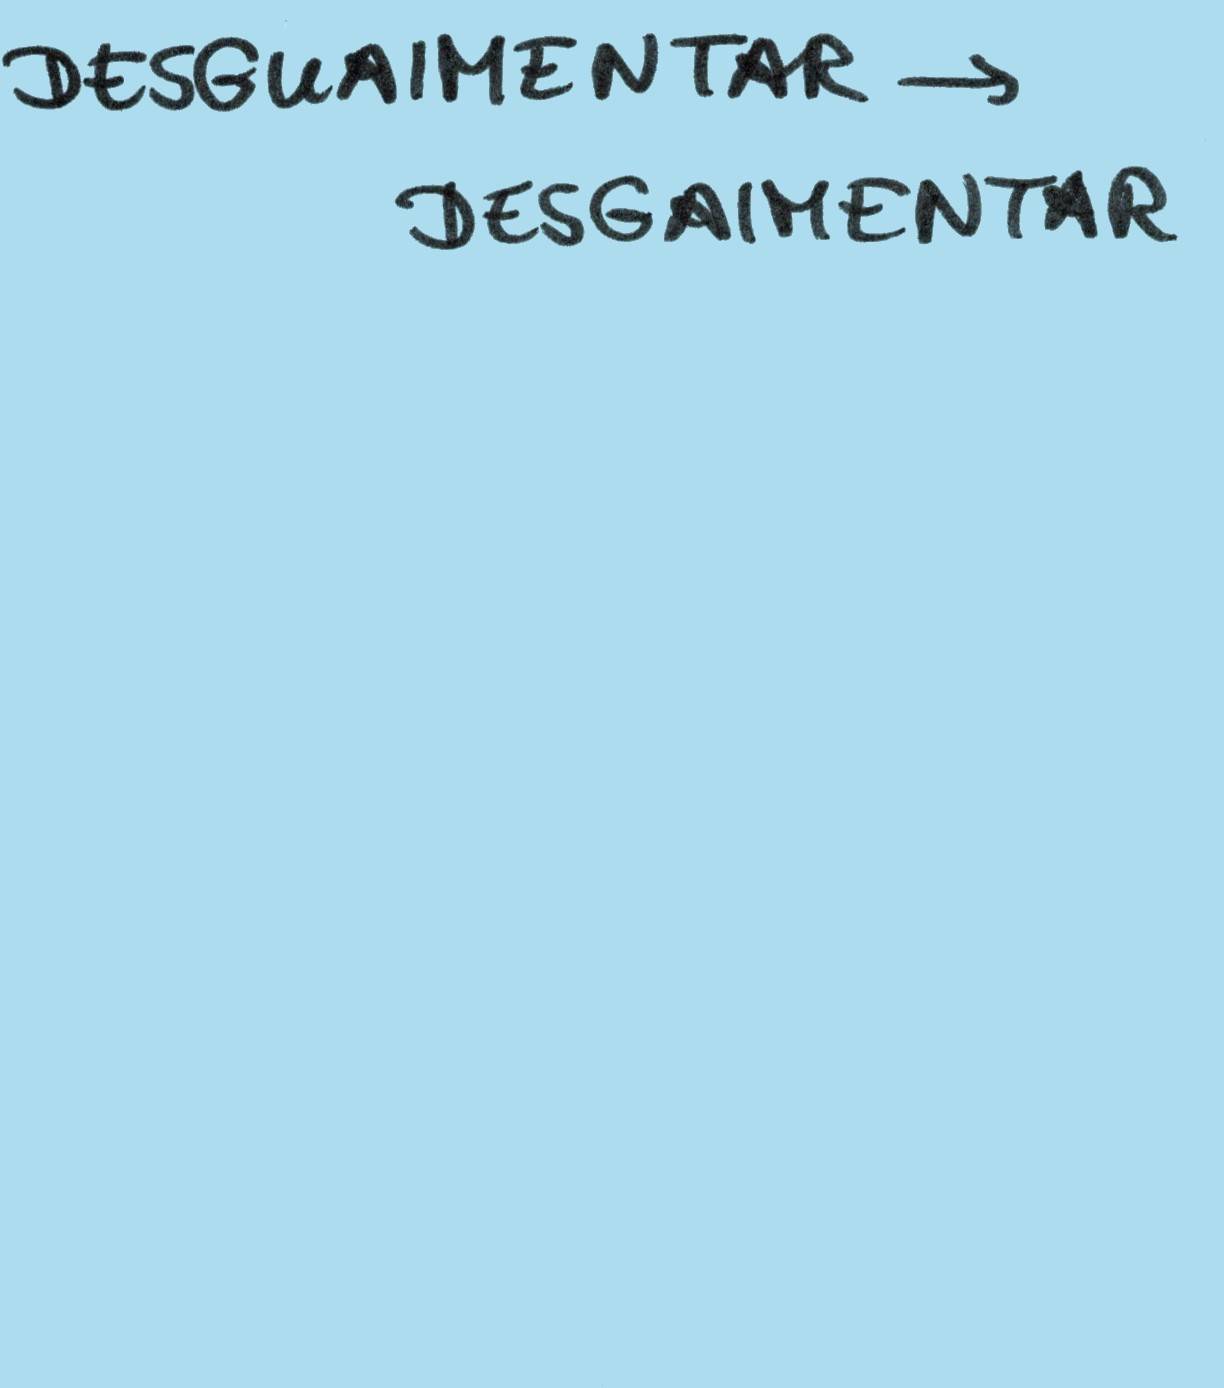 DESGUAIMENTAR →
DESGAIMENTAR